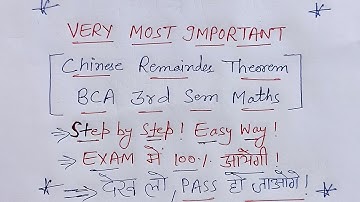 VERY MOST IMPORTANT
[Chinese Remainder Theorem
BCA 3rd Sem Maths]
⇒ Step by Step! Easy Way!
⇒ EXAM में 100% आयेगी!
⇒ देख लो, PASS हो जाओगे!